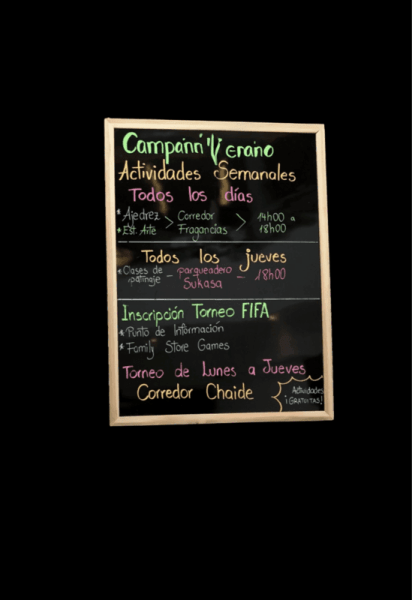 Campainn Verano
Actividades Semanales
Todos los días
* Ajedrez > Corredor > 14h00 a
* Est. Arte Fragancias 18h00
Todos los jueves
* Clases de patinaje - parqueadero Sukasa - 18h00
Inscripción Torneo FIFA
* Punto de Información
* Family Store Games
Torneo de Lunes a Jueves
Corredor Chaide
Actividades
¡GRATUITAS!